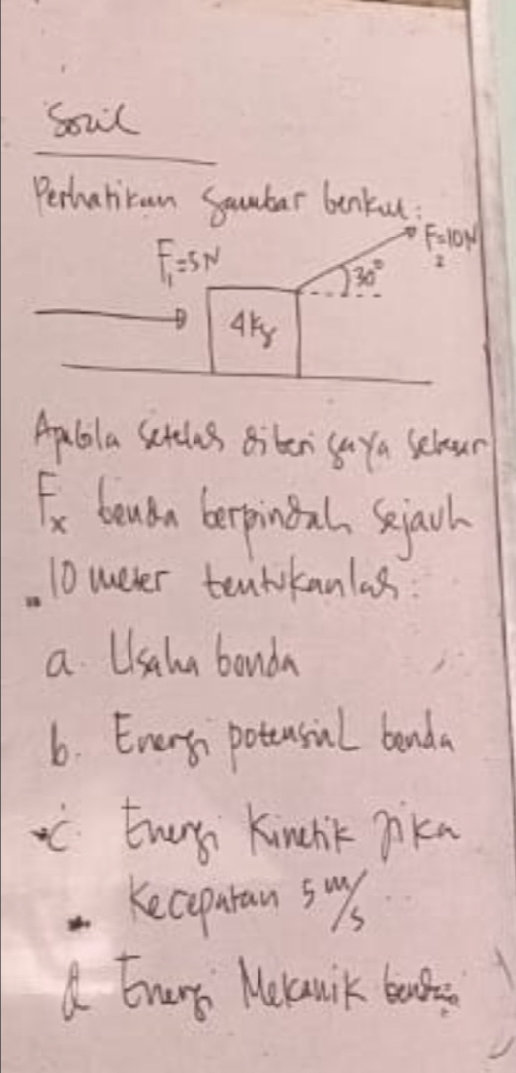 Soal
Perhatikan gambar berikut:
F₁=5N
F₂=10N
30°
4kg
Apabila setelah diberi gaya sebesar
Fx benda berpindah sejauh
10 meter tentukanlah:
a. Usaha benda
b. Energi potensial benda
c. Energi Kinetik jika
Kecepatan 5 m/s
d Energi Mekanik benda